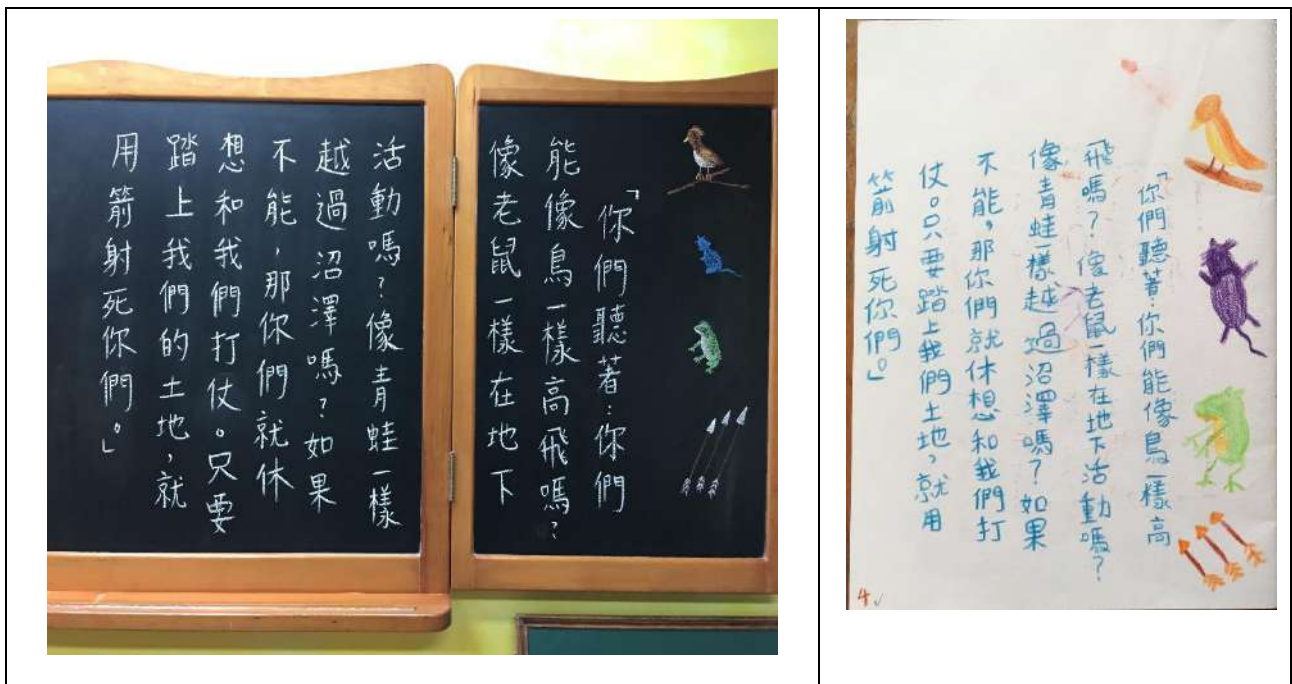 「你們聽著:你們
能像鳥一樣高飛嗎?
像老鼠一樣在地下
活動嗎?像青蛙一樣
越過沼澤嗎?如果
不能,那你們就休
想和我們打仗。只要
踏上我們的土地,就
用箭射死你們。」
「你們聽著:你們能像鳥一樣高
飛嗎?像老鼠一樣在地下活動嗎?
像青蛙一樣越過沼澤嗎?如果
不能,那你們就休想和我們打
仗。只要踏上我們土地,就用
箭射死你們。」
4